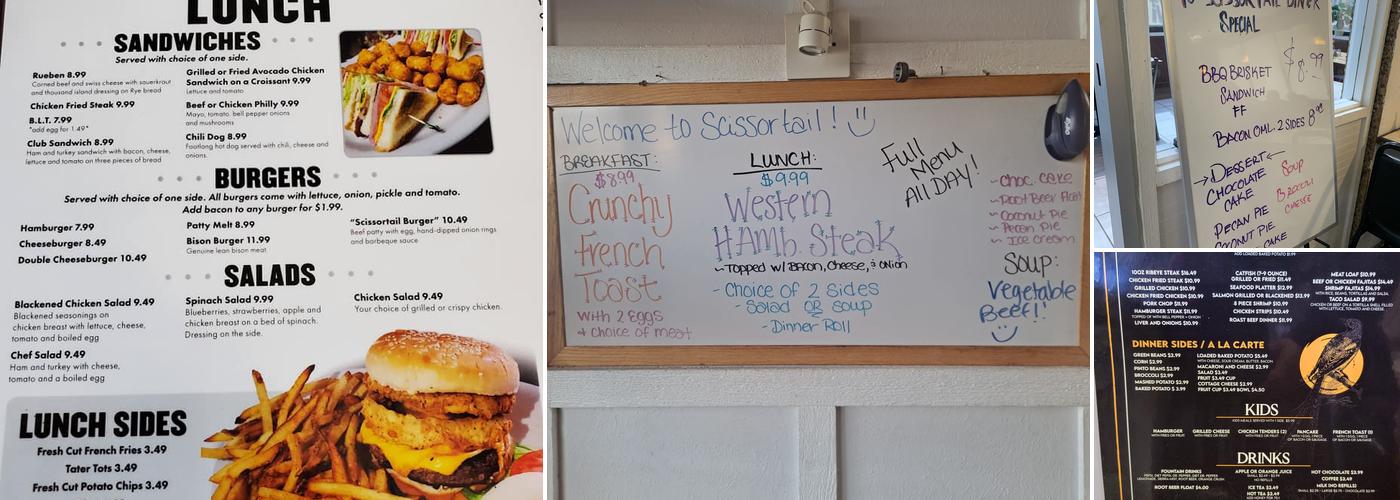 LUNCH
SANDWICHES
Served with choice of one side.
Rueben 8.99
Corned beef and swiss cheese with sauerkraut
and thousand island dressing on Rye bread
Chicken Fried Steak 9.99
B.L.T. 7.99
*add egg for 1.49*
Club Sandwich 8.99
Ham and turkey sandwich with bacon, cheese,
lettuce and tomato on three pieces of bread
Grilled or Fried Avocado Chicken
Sandwich on a Croissant 9.99
Lettuce and tomato
Beef or Chicken Philly 9.99
Mayo, tomato, bell pepper onions
and mushrooms
Chili Dog 8.99
Footlong hot dog served with chili, cheese and
onions.
BURGERS
Served with choice of one side. All burgers come with lettuce, onion, pickle and tomato.
Add bacon to any burger for $1.99.
Hamburger 7.99
Cheeseburger 8.49
Double Cheeseburger 10.49
Patty Melt 8.99
Bison Burger 11.99
Genuine lean bison meat
"Scissortail Burger" 10.49
Beef patty with egg, hand-dipped onion rings
and barbeque sauce
SALADS
Blackened Chicken Salad 9.49
Blackened seasonings on
chicken breast with lettuce, cheese,
tomato and boiled egg
Chef Salad 9.49
Ham and turkey with cheese,
tomato and a boiled egg
Spinach Salad 9.99
Blueberries, strawberries, apple and
chicken breast on a bed of spinach.
Dressing on the side.
Chicken Salad 9.49
Your choice of grilled or crispy chicken.
LUNCH SIDES
Fresh Cut French Fries 3.49
Tater Tots 3.49
Fresh Cut Potato Chips 3.49
Welcome to Scissortail!
BREAKFAST:
$8.99
Crunchy
French
Toast
with 2 eggs
+ choice of meat
LUNCH:
$9.99
Western
HAmb. Steak
~Topped w/ Bacon, Cheese, & Onion
- Choice of 2 sides
Salad OR Soup
- Dinner Roll
Full
Menu
All DAY!
~ Choc. Cake
~ Root Beer Float
~ Coconut Pie
~ Pecan Pie
~ Ice Cream
Soup:
Vegetable
Beef!
SCISSORTAIL DINER
SPECIAL
$8.99
BBQ BRISKET
SANDWICH
FF
BACON OML. 2 SIDES 8.99
DESSERT
CHOCOLATE
CAKE
PECAN PIE
COCONUT PIE
CAKE
SOUP
BROCCOLI
CHEESE
10OZ RIBEYE STEAK $16.49
CHICKEN FRIED STEAK $10.99
GRILLED CHICKEN $10.99
CHICKEN FRIED CHICKEN $10.99
PORK CHOP $11.99
HAMBURGER STEAK $11.99
TOPPED WITH BELL PEPPER + ONION
LIVER AND ONIONS $10.99
CATFISH (7-9 OUNCE)
GRILLED OR FRIED $11.49
SEAFOOD PLATTER $12.99
SALMON GRILLED OR BLACKENED $13.99
8 PIECE SHRIMP $10.99
CHICKEN STRIPS $10.49
ROAST BEEF DINNER $11.99
MEAT LOAF $10.99
BEEF OR CHICKEN FAJITAS $14.49
SHRIMP FAJITAS $14.99
WITH RICE, BEANS, TORTILLAS AND SALSA
TACO SALAD $9.99
CHICKEN OR BEEF ON A TORTILLA SHELL FILLED
WITH LETTUCE, TOMATO, AND CHEESE
DINNER SIDES / A LA CARTE
GREEN BEANS $2.99
CORN $2.99
PINTO BEANS $2.99
BROCCOLI $2.99
MASHED POTATO $2.99
BAKED POTATO $ 3.99
LOADED BAKED POTATO $5.49
WITH CHEESE, SOUR CREAM, BUTTER, BACON
MACARONI AND CHEESE $2.99
SALAD $3.49
FRUIT $3.49 CUP
COTTAGE CHEESE $2.99
FRUIT CUP $3.49 BOWL $4.50
KIDS
KIDS MEALS SERVED WITH 1 SIDE $5.99
HAMBURGER
WITH FRIES OR FRUIT
GRILLED CHEESE
WITH FRIES OR FRUIT
CHICKEN TENDERS (2)
WITH FRIES OR FRUIT
PANCAKE
WITH 1 EGG, 1 PIECE
OF BACON OR SAUSAGE
FRENCH TOAST (1)
WITH 1 EGG, 1 PIECE
OF BACON OR SAUSAGE
DRINKS
FOUNTAIN DRINKS
ROOT BEER FLOAT $4.00
APPLE OR ORANGE JUICE
NO REFILLS
ICE TEA $2.49
HOT TEA $2.49
HOT CHOCOLATE $2.99
COFFEE $2.49
MILK (NO REFILLS)